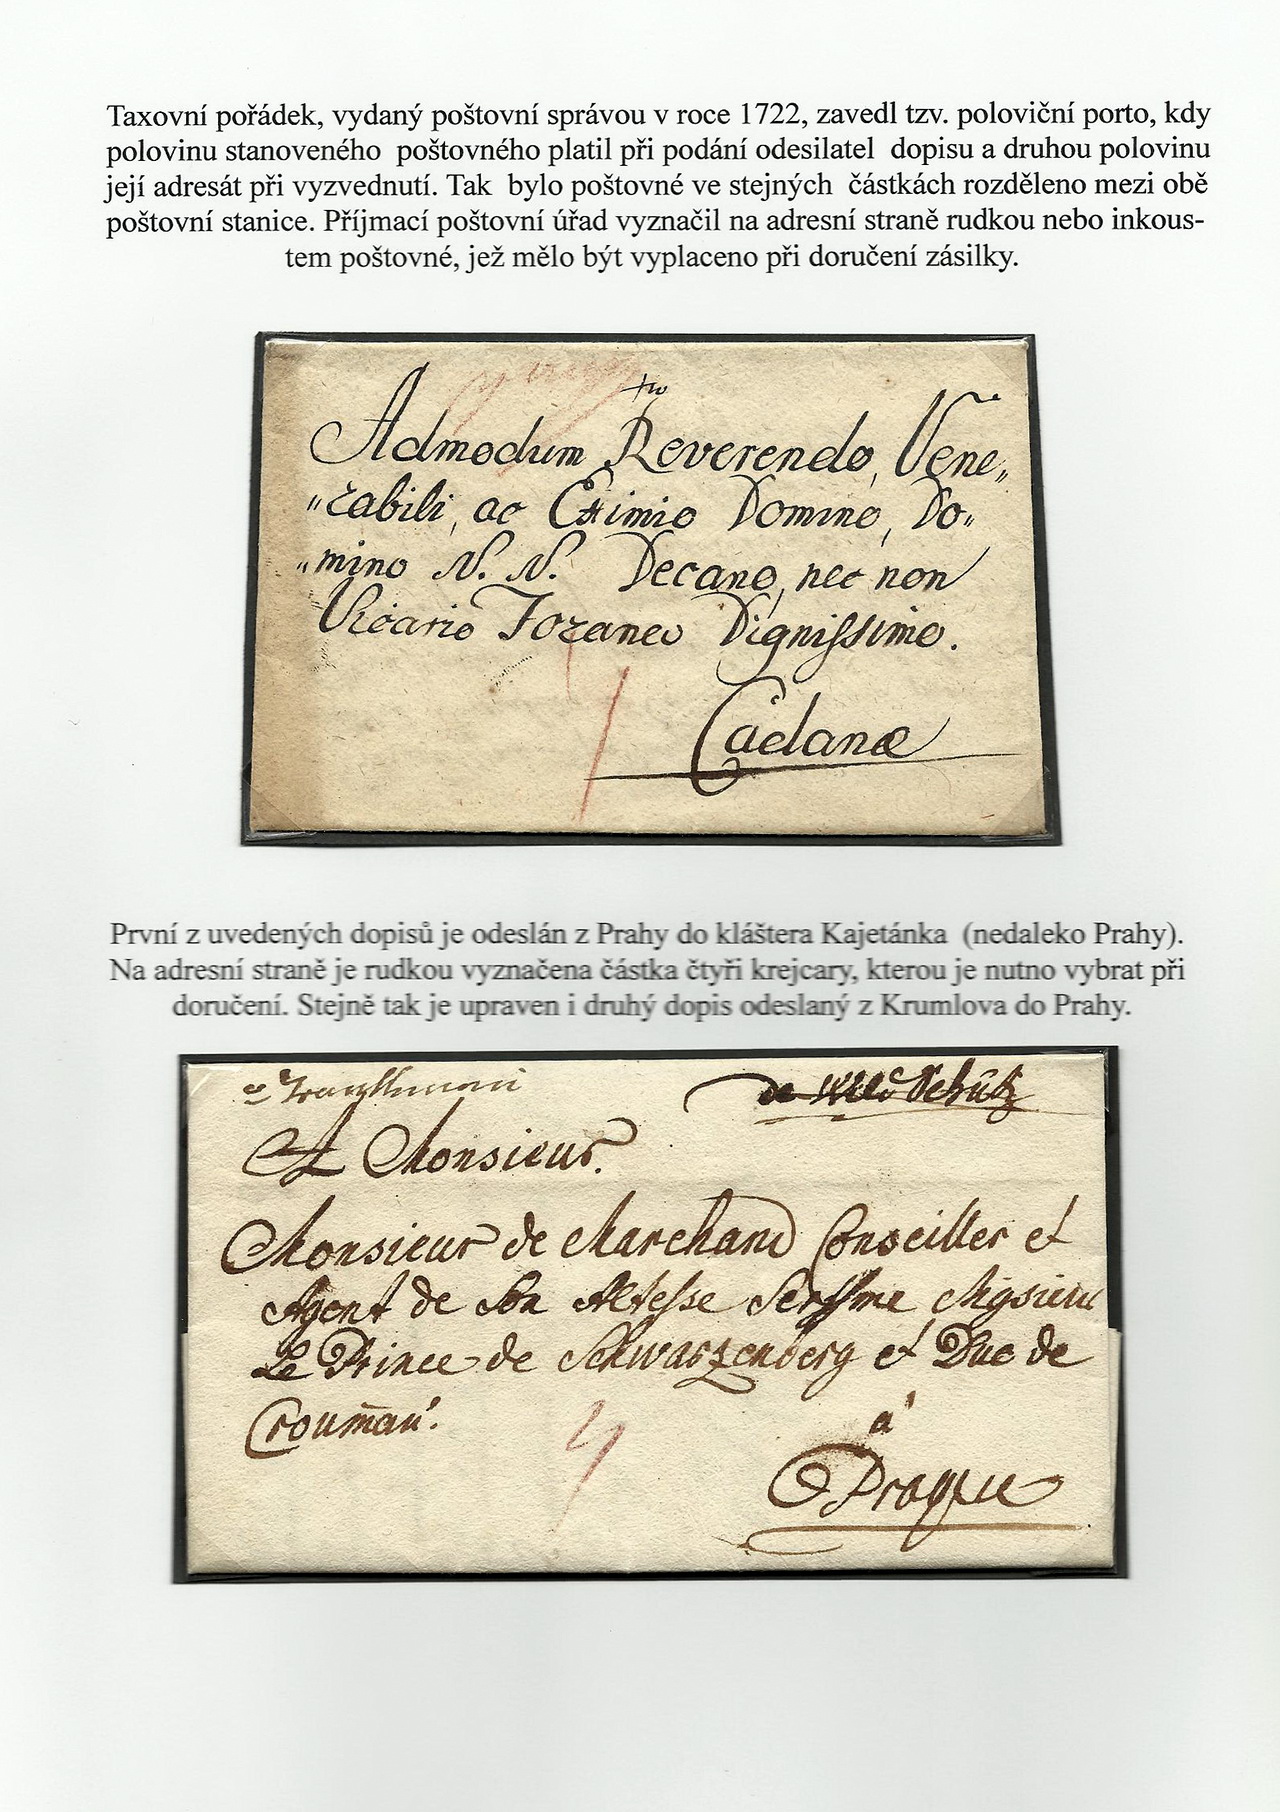 Taxovní pořádek, vydaný poštovní správou v roce 1722, zavedl tzv. poloviční porto, kdy
polovinu stanoveného poštovného platil při podání odesilatel dopisu a druhou polovinu
její adresát při vyzvednutí. Tak bylo poštovné ve stejných částkách rozděleno mezi obě
poštovní stanice. Příjmací poštovní úřad vyznačil na adresní straně rudkou nebo inkous-
tem poštovné, jež mělo být vyplaceno při doručení zásilky.
Admodum Reverendo, Vene„
„rabili, ac Eximio Domino, Do„
„mino N. N. Decano, nec non
Vicario Foraneo Dignissimo.
Cadanæ
První z uvedených dopisů je odeslán z Prahy do kláštera Kajetánka (nedaleko Prahy).
Na adresní straně je rudkou vyznačena částka čtyři krejcary, kterou je nutno vybrat při
doručení. Stejně tak je upraven i druhý dopis odeslaný z Krumlova do Prahy.
de
A Monsieur.
Monsieur de Marchand Conseiller et
Agent de Son Altesse Serssme Mgsieur
Le Prince de Schwarzenberg et Duc de
Croumau.
4
à
Prague